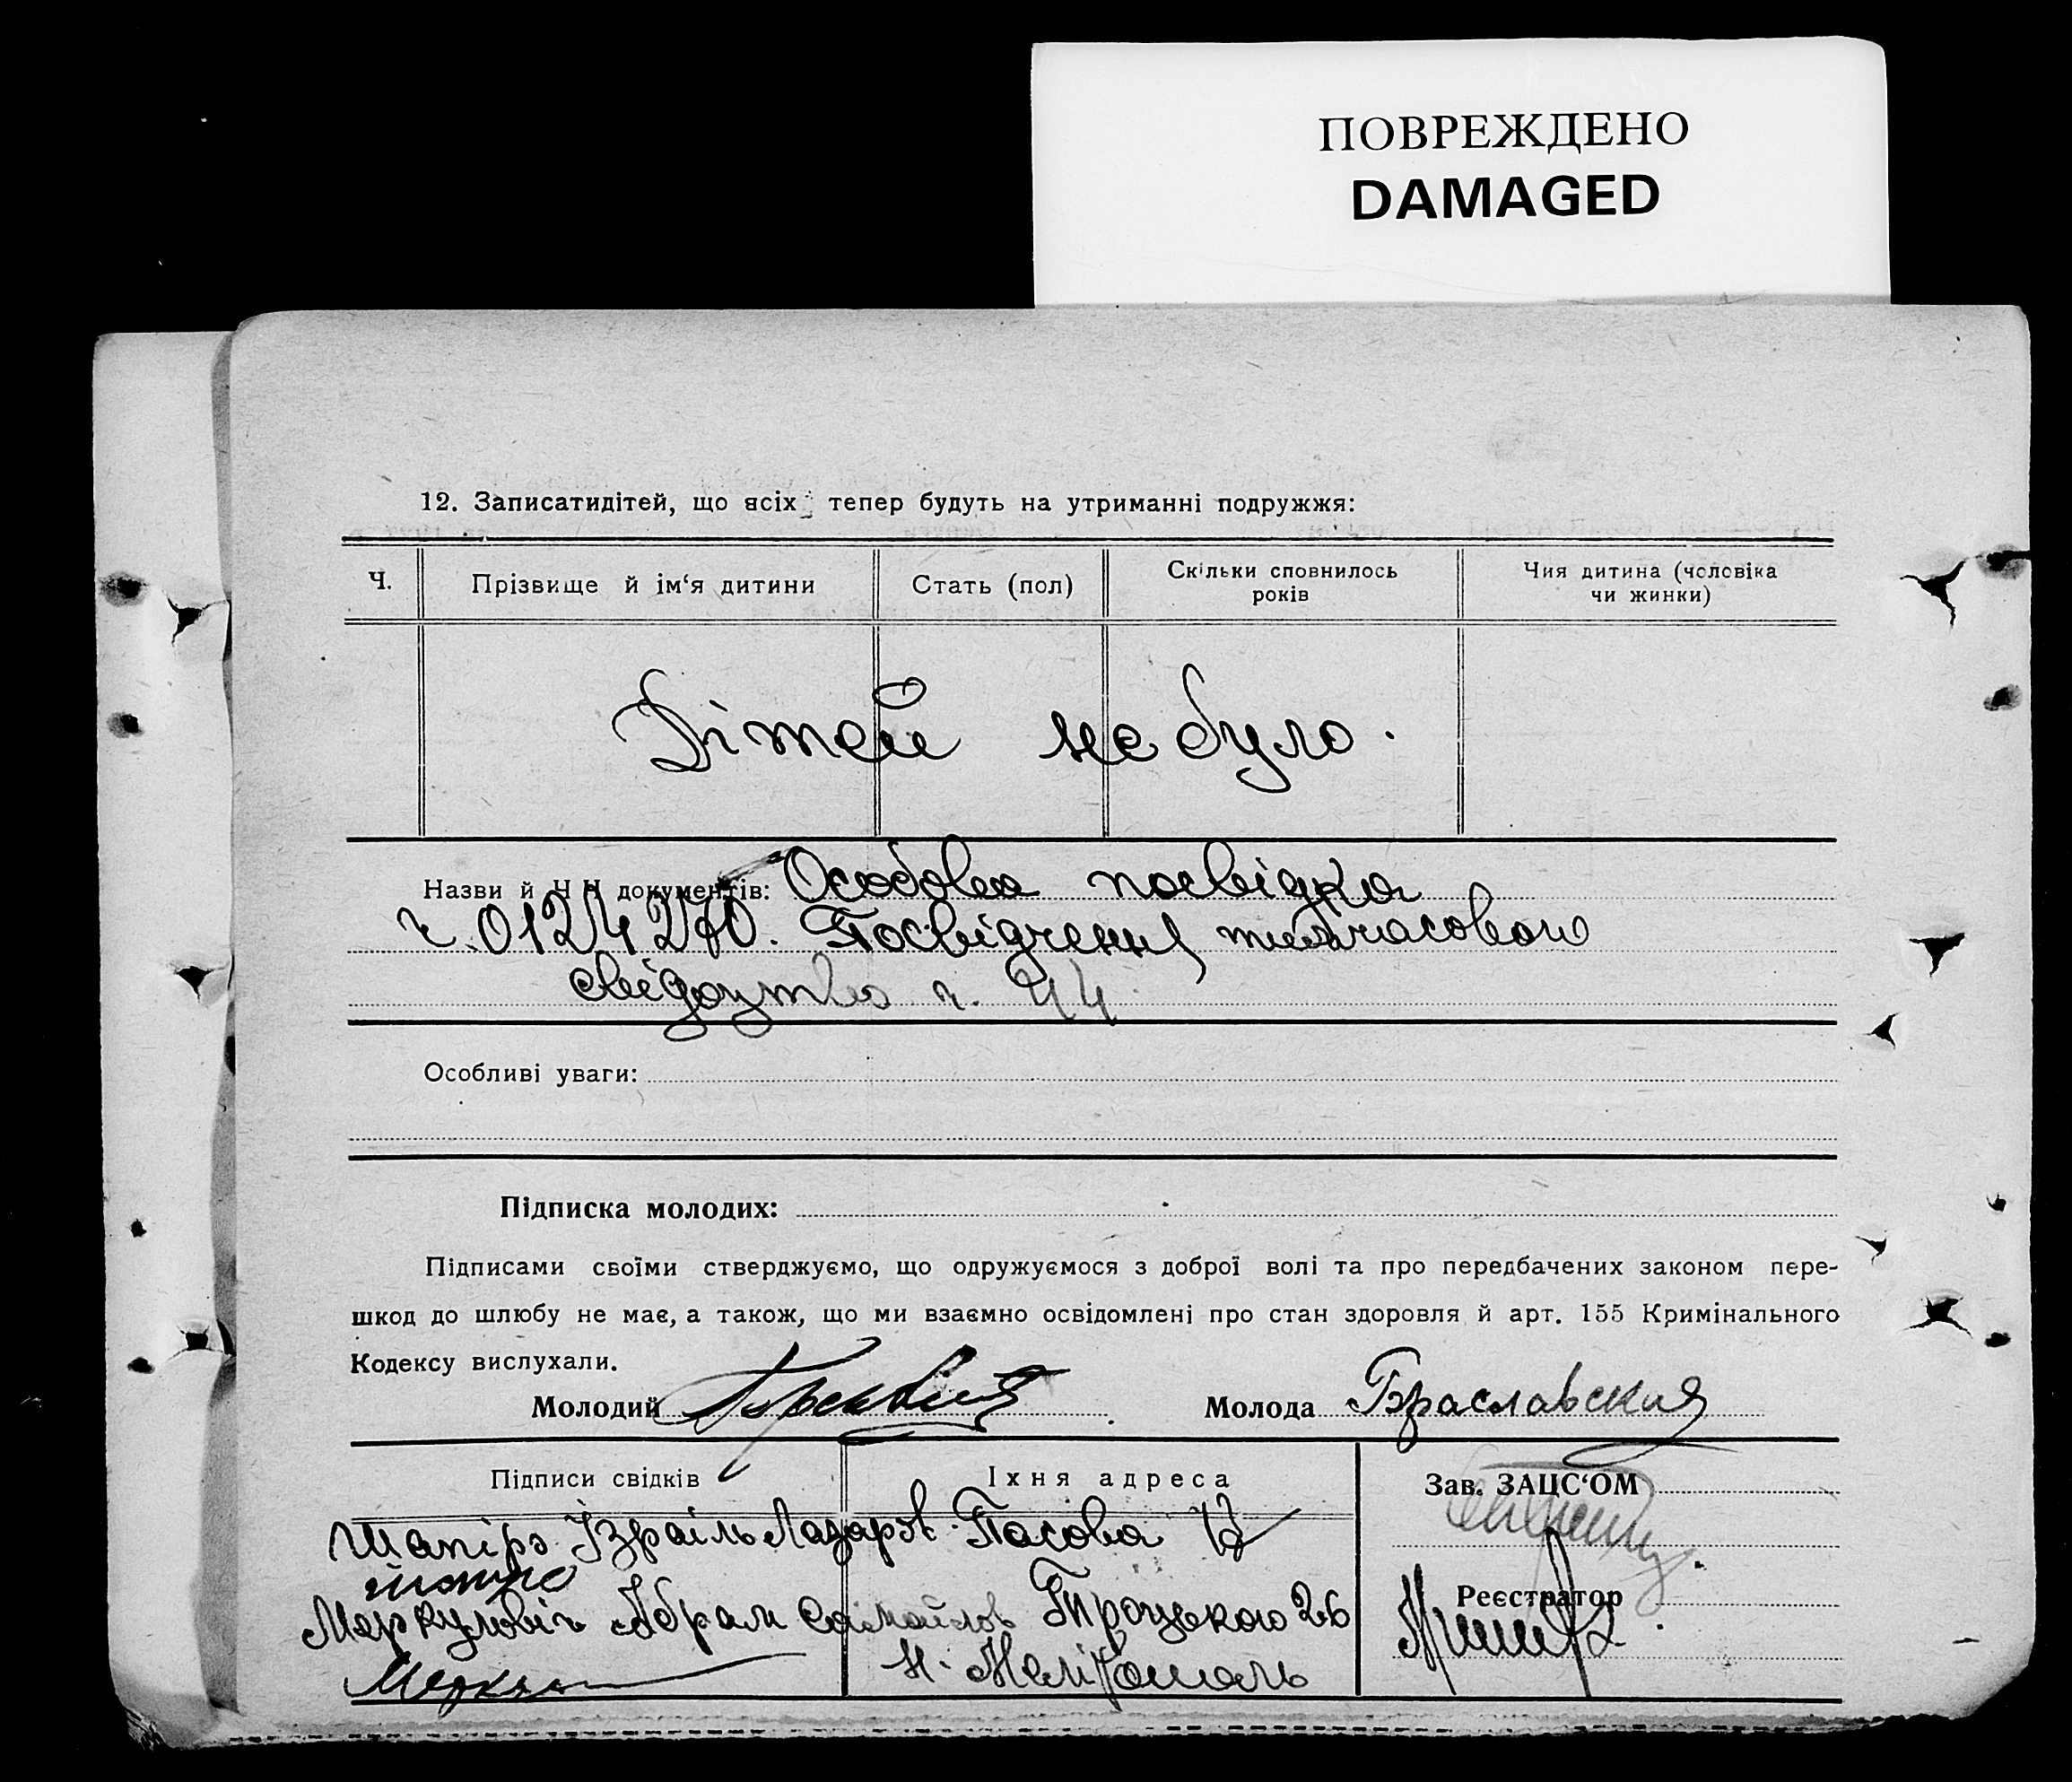 ПОВРЕЖДЕНО
DAMAGED
12. Записатидітей, що всіх тепер будуть на утриманні подружжя:
Ч.
Прізвище й ім'я дитини
Стать (пол)
Скільки сповнилось
років
Чия дитина (чоловіка
чи жинки)
Дітей не було.
Назви й Ч Ч документів: Особова посвідка
ч. 0124240. Посвідчення тимчасового
свідоцтво ч. 44
Особливі уваги:
Підписка молодих:
Підписами своїми стверджуємо, що одружуємося з доброї волі та про передбачених законом пере-
шкод до шлюбу не має, а також, що ми взаємно освідомлені про стан здоровля й арт. 155 Кримінального
Кодексу вислухали.
Молодий
Молода Браславская
Підписи свідків
Іхня адреса
Зав. ЗАЦС'ОМ
Шапіро Ізраіль Лазаров. Пасова
Меркуловіч Абрам Самойлов Троцького 26
М. Мелітополь
Реєстратор